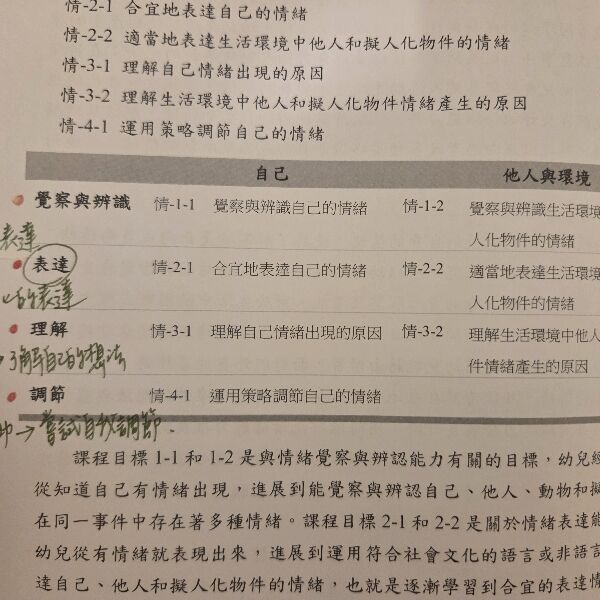 情-2-1 合宜地表達自己的情緒
情-2-2 適當地表達生活環境中他人和擬人化物件的情緒
情-3-1 理解自己情緒出現的原因
情-3-2 理解生活環境中他人和擬人化物件情緒產生的原因
情-4-1 運用策略調節自己的情緒
自己 他人與環境
覺察與辨識 情-1-1 覺察與辨識自己的情緒 情-1-2 覺察與辨識生活環境
人化物件的情緒
表達
表達 情-2-1 合宜地表達自己的情緒 情-2-2 適當地表達生活環境
人化物件的情緒
的表達
理解 情-3-1 理解自己情緒出現的原因 情-3-2 理解生活環境中他人
件情緒產生的原因
了解自己的想法
調節 情-4-1 運用策略調節自己的情緒
→嘗試自我調節
課程目標 1-1 和 1-2 是與情緒覺察與辨認能力有關的目標，幼兒經
從知道自己有情緒出現，進展到能覺察與辨認自己、他人、動物和擬
在同一事件中存在著多種情緒。課程目標 2-1 和 2-2 是關於情緒表達能
幼兒從有情緒就表現出來，進展到運用符合社會文化的語言或非語言
達自己、他人和擬人化物件的情緒，也就是逐漸學習到合宜的表達情